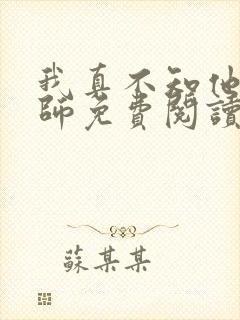 我真不知他
師免費閱讀
蘇某某